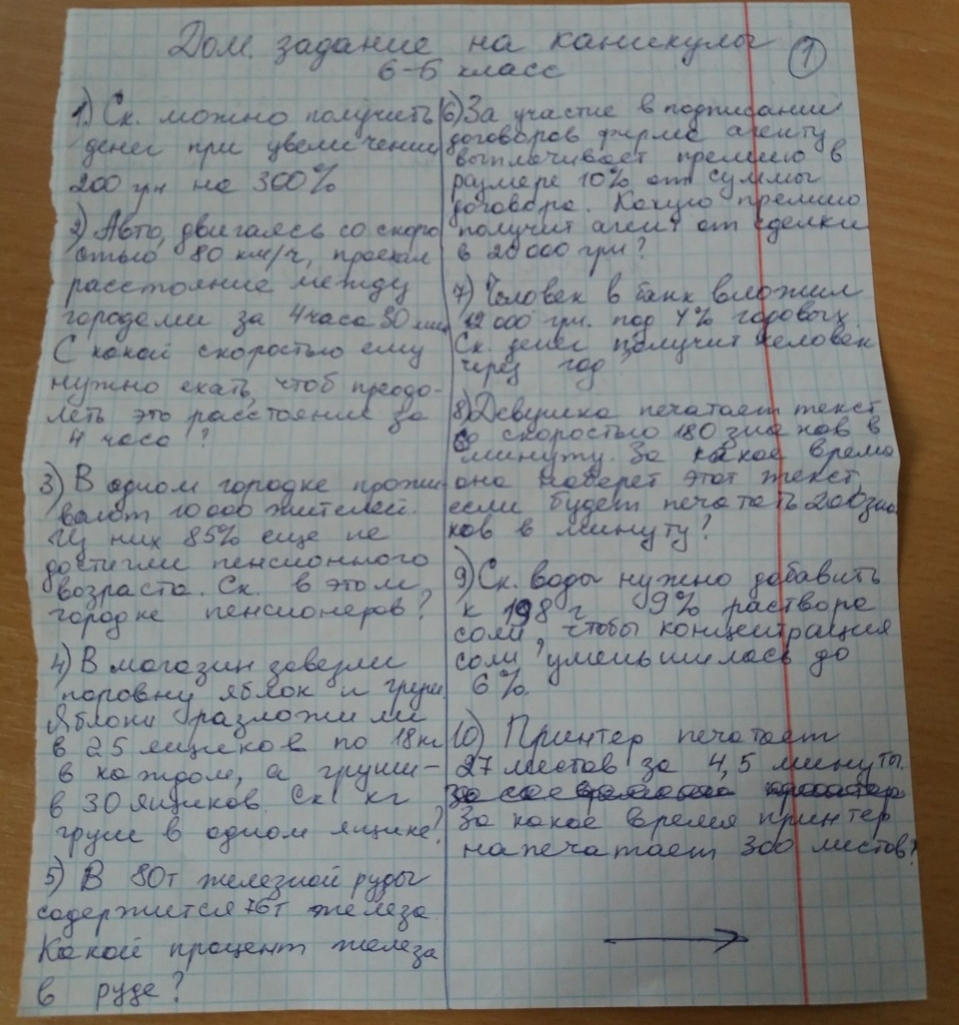 Дом. задание на каникулы
①
6-Б класс
1) Ск. можно получить
денег при увеличении
200 грн на 300%
2) Авто, двигаясь со скоро
стью 80 км/ч, проехал
расстояние между
городами за 4 часа 30 мин
С какой скоростью ему
нужно ехать, чтоб преодо-
леть это расстояние за
4 часа?
3) В одном городке прожи
вают 10000 жителей.
Из них 85% еще не
достигли пенсионного
возраста. Ск. в этом
городке пенсионеров?
4) В магазин завезли
поровну яблок и груш
Яблоки разложили
в 25 ящиков по 18 кг
в каждом, а груши-
в 30 ящиков. Ск. кг
груш в одном ящике?
5) В 80т железной руды
содержится 76т железа.
Какой процент железа
в руде?
6) За участие в подписании
договоров фирма агенту
выплачивает премию в
размере 10% от суммы
договора. Какую премию
получит агент от сделки
в 20000 грн?
7) Человек в банк вложил
12000 грн. под 4% годовых.
Ск. денег получит человек
через год
8) Девушка печатает текст
со скоростью 180 знаков в
минуту. За какое время
она наберет этот текст,
если будет печатать 200 зна
ков в минуту?
9) Ск. воды нужно добавить
к 198 г 9% раствора
соли, чтобы концентрация
соли уменьшилась до
6%.
10) Принтер печатает
27 листов за 4,5 минуты.
За какое время принтер
напечатает 300 листов?